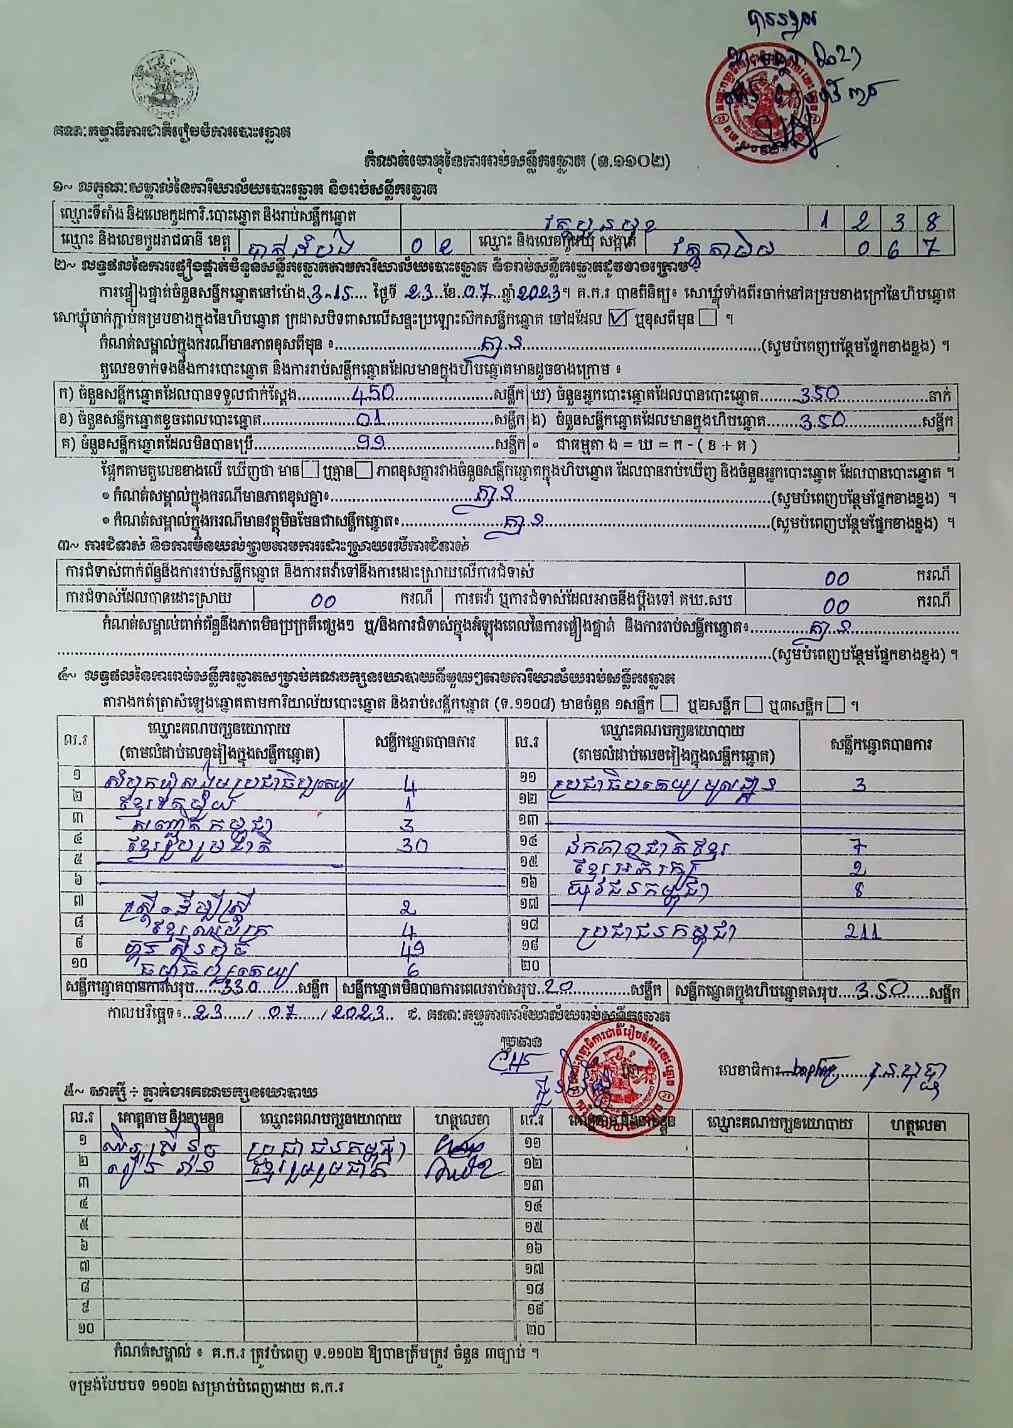 បានទទួល
គណៈកម្មាធិការជាតិរៀបចំការបោះឆ្នោត
កំណត់ហេតុនៃការរាប់សន្លឹកឆ្នោត (ទ.១១០២)
១~ លក្ខណៈសម្គាល់នៃការិយាល័យបោះឆ្នោត និងរាប់សន្លឹកឆ្នោត
ឈ្មោះទីតាំង និងលេខកូដការិ.បោះឆ្នោត និងរាប់សន្លឹកឆ្នោត 1 2 3 8
ឈ្មោះ និងលេខកូដរាជធានី ខេត្ត បាត់ដំបង 0 2 ឈ្មោះ និងលេខកូដឃុំ សង្កាត់ វត្តតាមិម 0 6 7
២~ លទ្ធផលនៃការផ្ទៀងផ្ទាត់ចំនួនសន្លឹកឆ្នោតតាមការិយាល័យបោះឆ្នោត និងរាប់សន្លឹកឆ្នោតដូចខាងក្រោម ÷
ការផ្ទៀងផ្ទាត់ចំនួនសន្លឹកឆ្នោតនៅម៉ោង 3:15 ថ្ងៃទី 23 ខែ 07 ឆ្នាំ 2023 ។ គ.ក.រ បានពិនិត្យ៖ សោឃ្លុំទាំងពីរចាក់នៅគម្របខាងក្រៅនៃហិបឆ្នោត
សោឃ្លុំចាក់ភ្ជាប់គម្របខាងក្នុងនៃហិបឆ្នោត ក្រដាសបិទពាសលើសន្ទះប្រឡោះស៊កសន្លឹកឆ្នោត នៅដដែល ☑ ឬខុសពីមុន ☐ ។
កំណត់សម្គាល់ក្នុងករណីមានភាពខុសពីមុន ៖ គ្មាន (សូមបំពេញបន្ថែមផ្នែកខាងខ្នង) ។
តួលេខទាក់ទងនឹងការបោះឆ្នោត និងការរាប់សន្លឹកឆ្នោតដែលមានក្នុងហិបឆ្នោតមានដូចខាងក្រោម ៖
ក) ចំនួនសន្លឹកឆ្នោតដែលបានទទួលជាក់ស្តែង 450 សន្លឹក ឃ) ចំនួនអ្នកបោះឆ្នោតដែលបានបោះឆ្នោត 350 នាក់
ខ) ចំនួនសន្លឹកឆ្នោតខូចពេលបោះឆ្នោត 01 សន្លឹក ង) ចំនួនសន្លឹកឆ្នោតដែលមានក្នុងហិបឆ្នោត 350 សន្លឹក
គ) ចំនួនសន្លឹកឆ្នោតដែលមិនបានប្រើ 99 សន្លឹក ៙ ជាធម្មតា ង = ឃ = ក - ( ខ + គ )
ផ្អែកតាមតួលេខខាងលើ ឃើញថា មាន ☐ ឬគ្មាន ☐ ភាពខុសគ្នារវាងចំនួនសន្លឹកឆ្នោតក្នុងហិបឆ្នោត ដែលបានរាប់ឃើញ និងចំនួនអ្នកបោះឆ្នោត ដែលបានបោះឆ្នោត ។
• កំណត់សម្គាល់ក្នុងករណីមានភាពខុសគ្នា៖ គ្មាន (សូមបំពេញបន្ថែមផ្នែកខាងខ្នង) ។
• កំណត់សម្គាល់ក្នុងករណីមានវត្ថុមិនមែនជាសន្លឹកឆ្នោត៖ គ្មាន (សូមបំពេញបន្ថែមផ្នែកខាងខ្នង) ។
៣~ ការជំទាស់ និងការមិនយល់ព្រមតាមការដោះស្រាយលើការជំទាស់
ការជំទាស់ពាក់ព័ន្ធនឹងការរាប់សន្លឹកឆ្នោត និងការតវ៉ាទៅនឹងការដោះស្រាយលើការជំទាស់ 00 ករណី
ការជំទាស់ដែលបានដោះស្រាយ 00 ករណី ការតវ៉ា ឬការជំទាស់ដែលអាចនឹងប្តឹងទៅ គឃ.សប 00 ករណី
កំណត់សម្គាល់ពាក់ព័ន្ធនឹងភាពមិនប្រក្រតីផ្សេងៗ ឬ/និងការជំទាស់ក្នុងអំឡុងពេលនៃការផ្ទៀងផ្ទាត់ និងការរាប់សន្លឹកឆ្នោត៖ គ្មាន
(សូមបំពេញបន្ថែមផ្នែកខាងខ្នង) ។
៤~ លទ្ធផលនៃការរាប់សន្លឹកឆ្នោតសម្រាប់គណបក្សនយោបាយនីមួយៗតាមការិយាល័យរាប់សន្លឹកឆ្នោត
តារាងកត់ត្រាសំឡេងឆ្នោតតាមការិយាល័យបោះឆ្នោត និងរាប់សន្លឹកឆ្នោត (ទ.១១០៨) មានចំនួន ១សន្លឹក ☐ ឬ២សន្លឹក ☐ ឬ៣សន្លឹក ☐ ។
ល.រ ឈ្មោះគណបក្សនយោបាយ (តាមលំដាប់លេខរៀងក្នុងសន្លឹកឆ្នោត) សន្លឹកឆ្នោតបានការ ល.រ ឈ្មោះគណបក្សនយោបាយ (តាមលំដាប់លេខរៀងក្នុងសន្លឹកឆ្នោត) សន្លឹកឆ្នោតបានការ
១ សំបុកឃ្មុំសង្គមប្រជាធិបតេយ្យ 4 ១១ ប្រជាធិបតេយ្យមូលដ្ឋាន 3
២ ខ្មែរតែមួយ 1 ១២
៣ សញ្ជាតិកម្ពុជា 3 ១៣
៤ ខ្មែររួបរួមជាតិ 30 ១៤ ឯកភាពជាតិខ្មែរ 7
៥ ១៥ ខ្មែរអភិរក្ស 2
៦ ១៦ យុវជនកម្ពុជា 8
៧ ស្ត្រីដើម្បីស្ត្រី 2 ១៧
៨ ខ្មែរឈប់ក្រ 4 ១៨ ប្រជាជនកម្ពុជា 211
៩ ហ៊្វុនស៊ិនប៉ិច 49 ១៩
១០ ធម្មាធិបតេយ្យ 6 ២០
សន្លឹកឆ្នោតបានការសរុប 330 សន្លឹក សន្លឹកឆ្នោតមិនបានការពេលរាប់សរុប 20 សន្លឹក សន្លឹកឆ្នោតក្នុងហិបឆ្នោតសរុប 350 សន្លឹក
កាលបរិច្ឆេទ៖ 23 / 07 / 2023 ជ. គណៈកម្មការការិយាល័យរាប់សន្លឹកឆ្នោត
ប្រធាន
លេខាធិការ
៥~ សាក្សី ÷ ភ្នាក់ងារគណបក្សនយោបាយ
ល.រ គោត្តនាម និងនាមខ្លួន ឈ្មោះគណបក្សនយោបាយ ហត្ថលេខា ល.រ គោត្តនាម និងនាមខ្លួន ឈ្មោះគណបក្សនយោបាយ ហត្ថលេខា
១ ប្រជាជនកម្ពុជា ១១
២ ខ្មែររួបរួមជាតិ ១២
៣ ១៣
៤ ១៤
៥ ១៥
៦ ១៦
៧ ១៧
៨ ១៨
៩ ១៩
១០ ២០
កំណត់សម្គាល់ ៖ គ.ក.រ ត្រូវបំពេញ ទ.១១០២ ឱ្យបានត្រឹមត្រូវ ចំនួន ៣ច្បាប់ ។
ទម្រង់បែបបទ ១១០២ សម្រាប់បំពេញដោយ គ.ក.រ